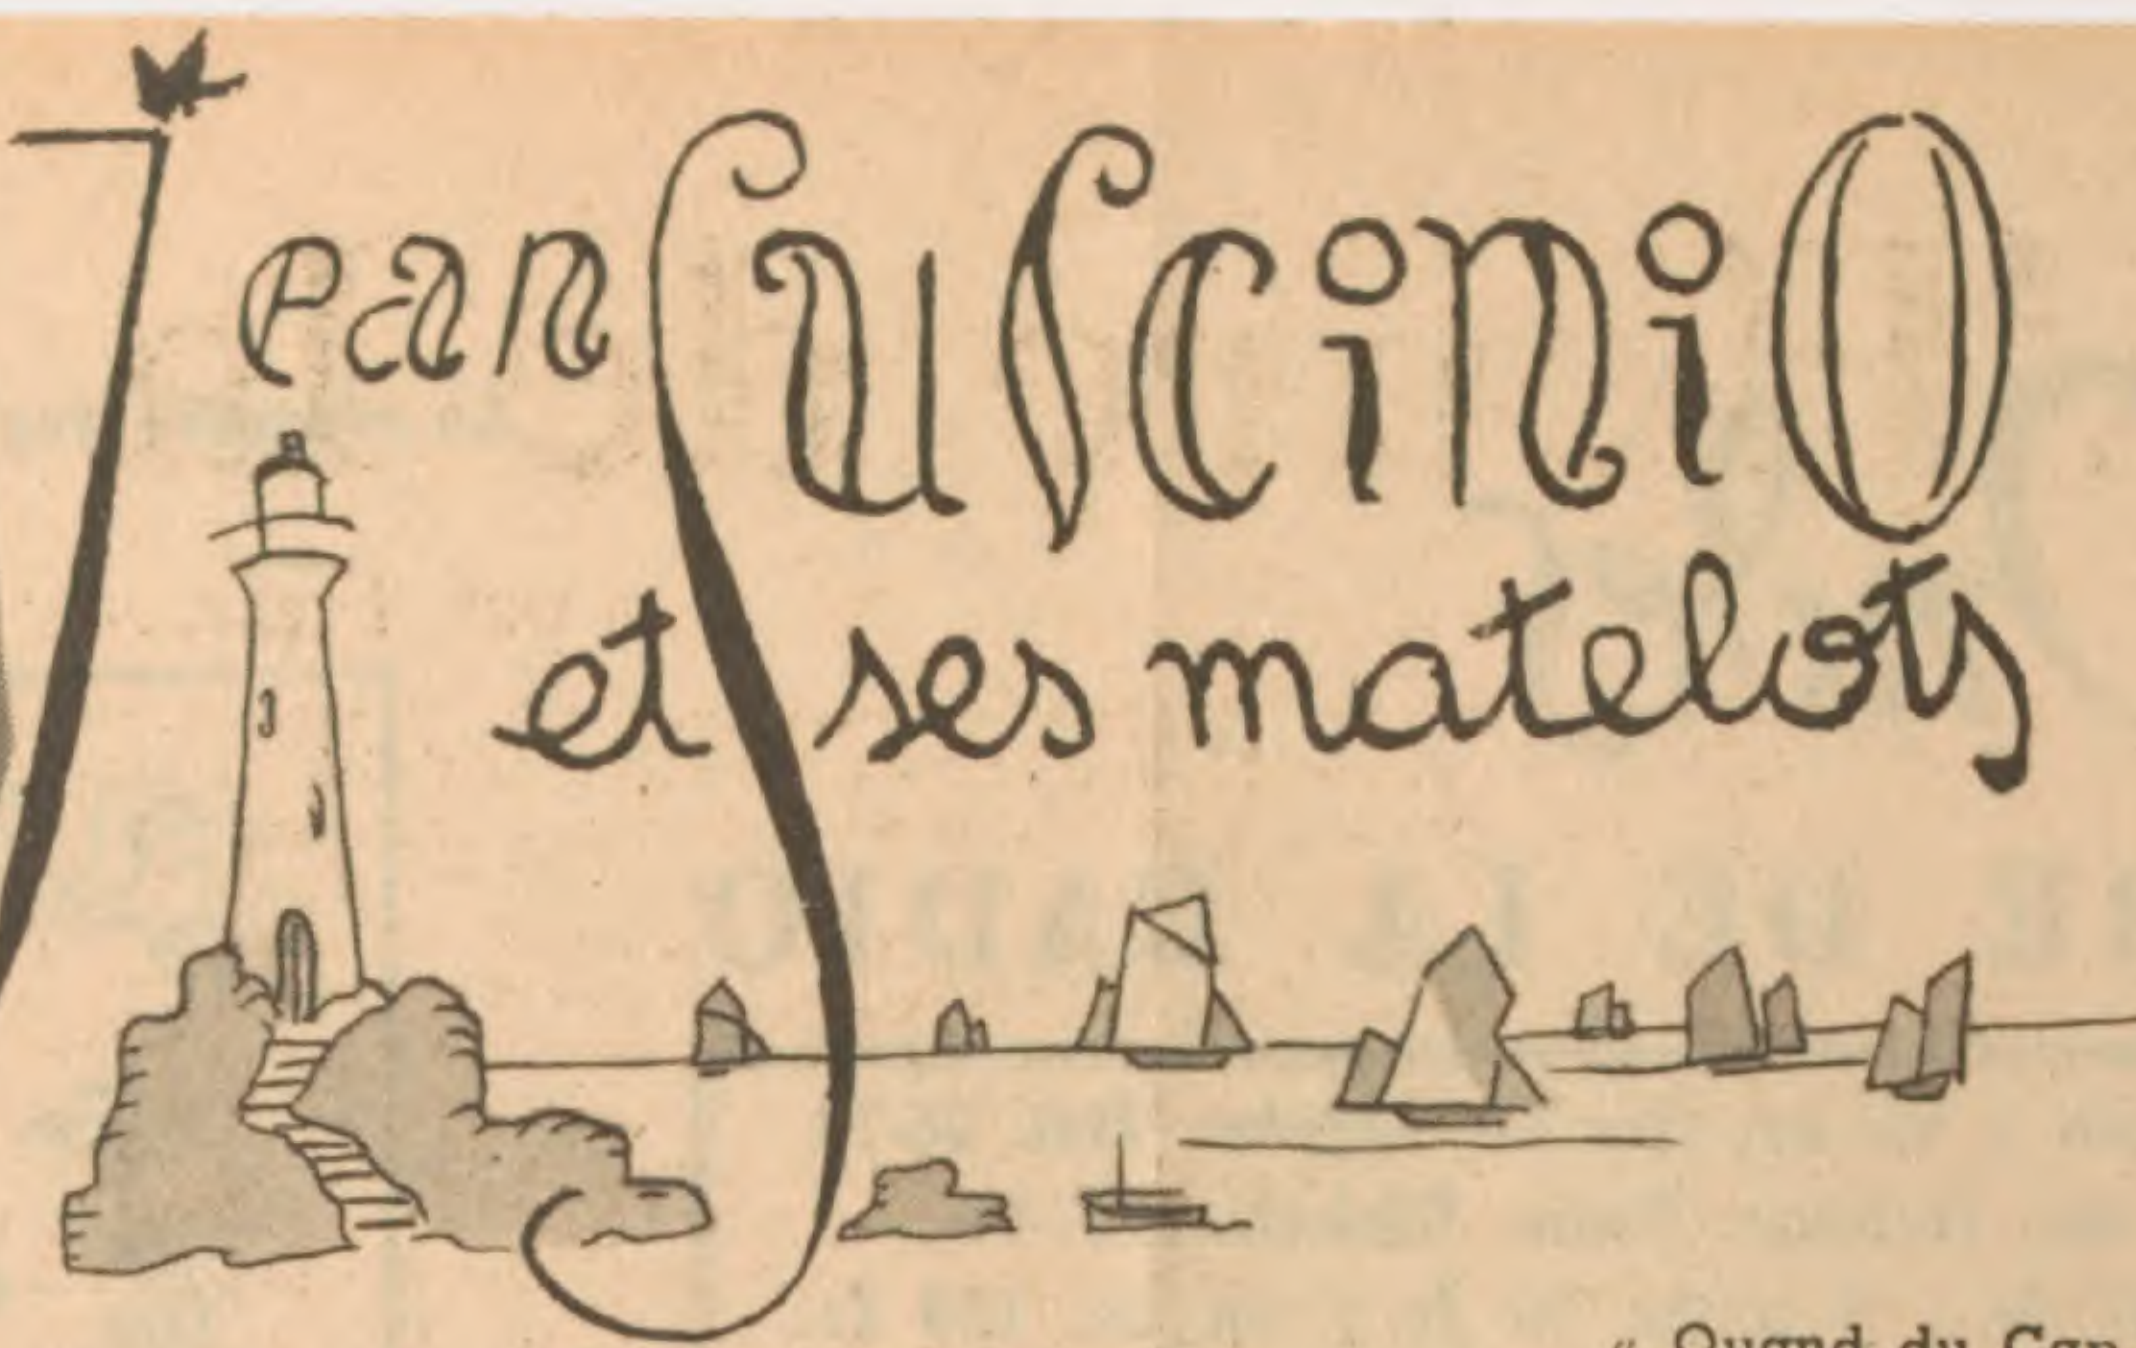 Jean Suscinio
et ses matelots
« Quand du Cap